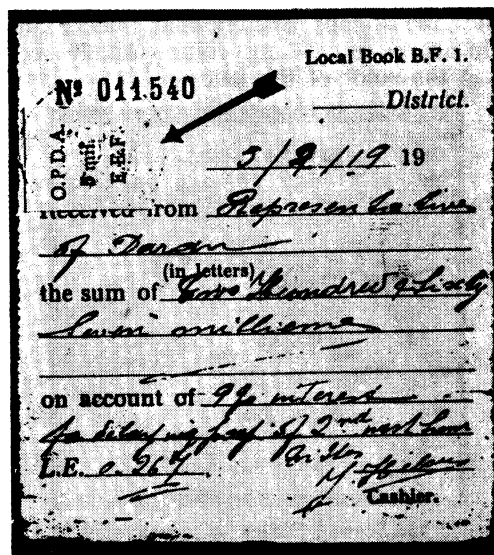 Local Book B.F. 1.
Nº 011.540
District.
O.P.D.A.
5 mil.
E.E.F.
3/2/19 19
Received from Representative
of Daran
(in letters)
the sum of Two Hundred & Sixty
Seven millieme
on account of 9% interest
for delaying pay of 2nd
L.E. 0.267
Cashier.